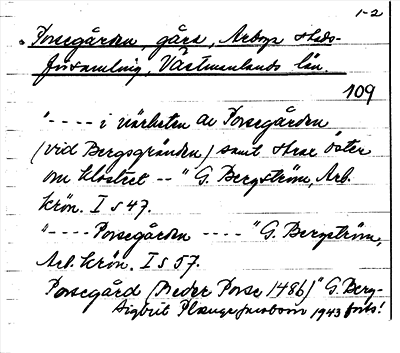 1-2
Porsegården, gård, Arboga stads-
församling, Västmanlands län.
109
"---- i närheten av Porsegården
(vid Bergsgränden) samt strax öster
om klostret --" G. Bergström, Arb.
krön. I s 47.
"---- Porsegården ----" G. Bergström,
Arb. krön. I s 57.
Porsegård (Peder Porse 1486)" G. Berg-
Sigbrit Plænge Jacobson 1943 forts!